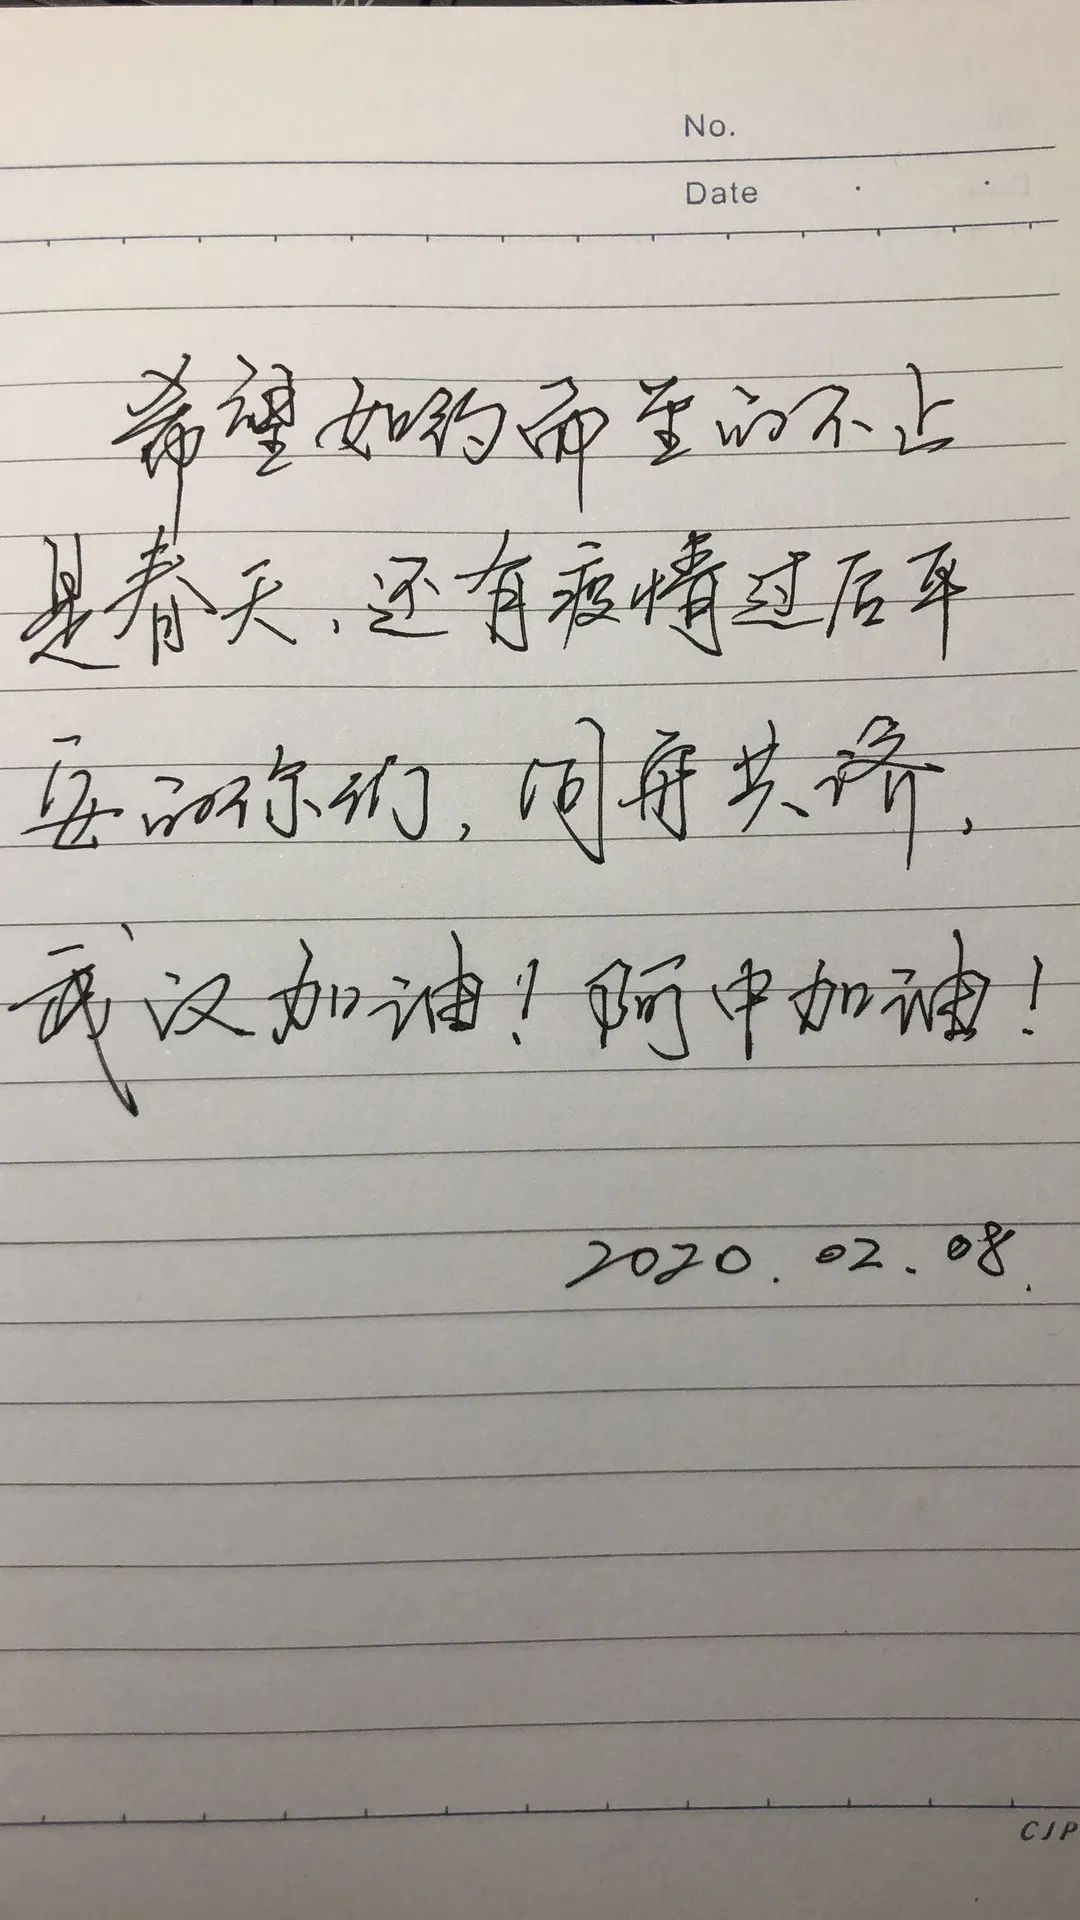 No.
Date
希望如约而至的不止
是春天,还有疫情过后平
安的你们,同舟共济,
武汉加油!阿中加油!
2020.02.08.
CJP